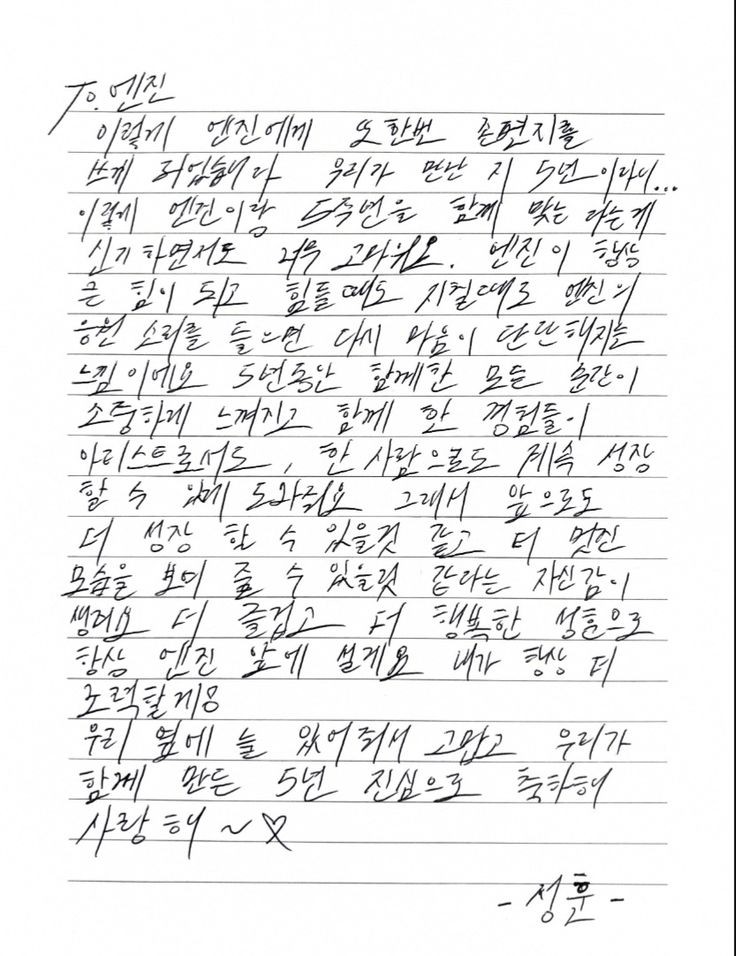 To. 엔진
이렇게 엔진에게 또 한번 손편지를
쓰게 되었습니다 우리가 만난 지 5년이라니...
이렇게 엔진이랑 5주년을 함께 맞는 다는게
신기하면서도 너무 고마워요. 엔진이 항상
큰 힘이 되고 힘들때도 지칠때도 엔진의
응원 소리를 들으면 다시 마음이 단단해지는
느낌이에요 5년동안 함께한 모든 순간이
소중하게 느껴지고 함께 한 경험들이
아티스트로서도, 한 사람으로도 계속 성장
할 수 있게 도와줘요 그래서 앞으로도
더 성장 할 수 있을것 같고 더 멋진
모습을 보여 줄 수 있을것 같다는 자신감이
생겨요 더 즐겁고 더 행복한 성훈으로
항상 엔진 앞에 설게요 내가 항상 더
노력할게요
우리 옆에 늘 있어줘서 고맙고 우리가
함께 만든 5년 진심으로 축하해
사랑해 ~ ♡
- 성훈 -